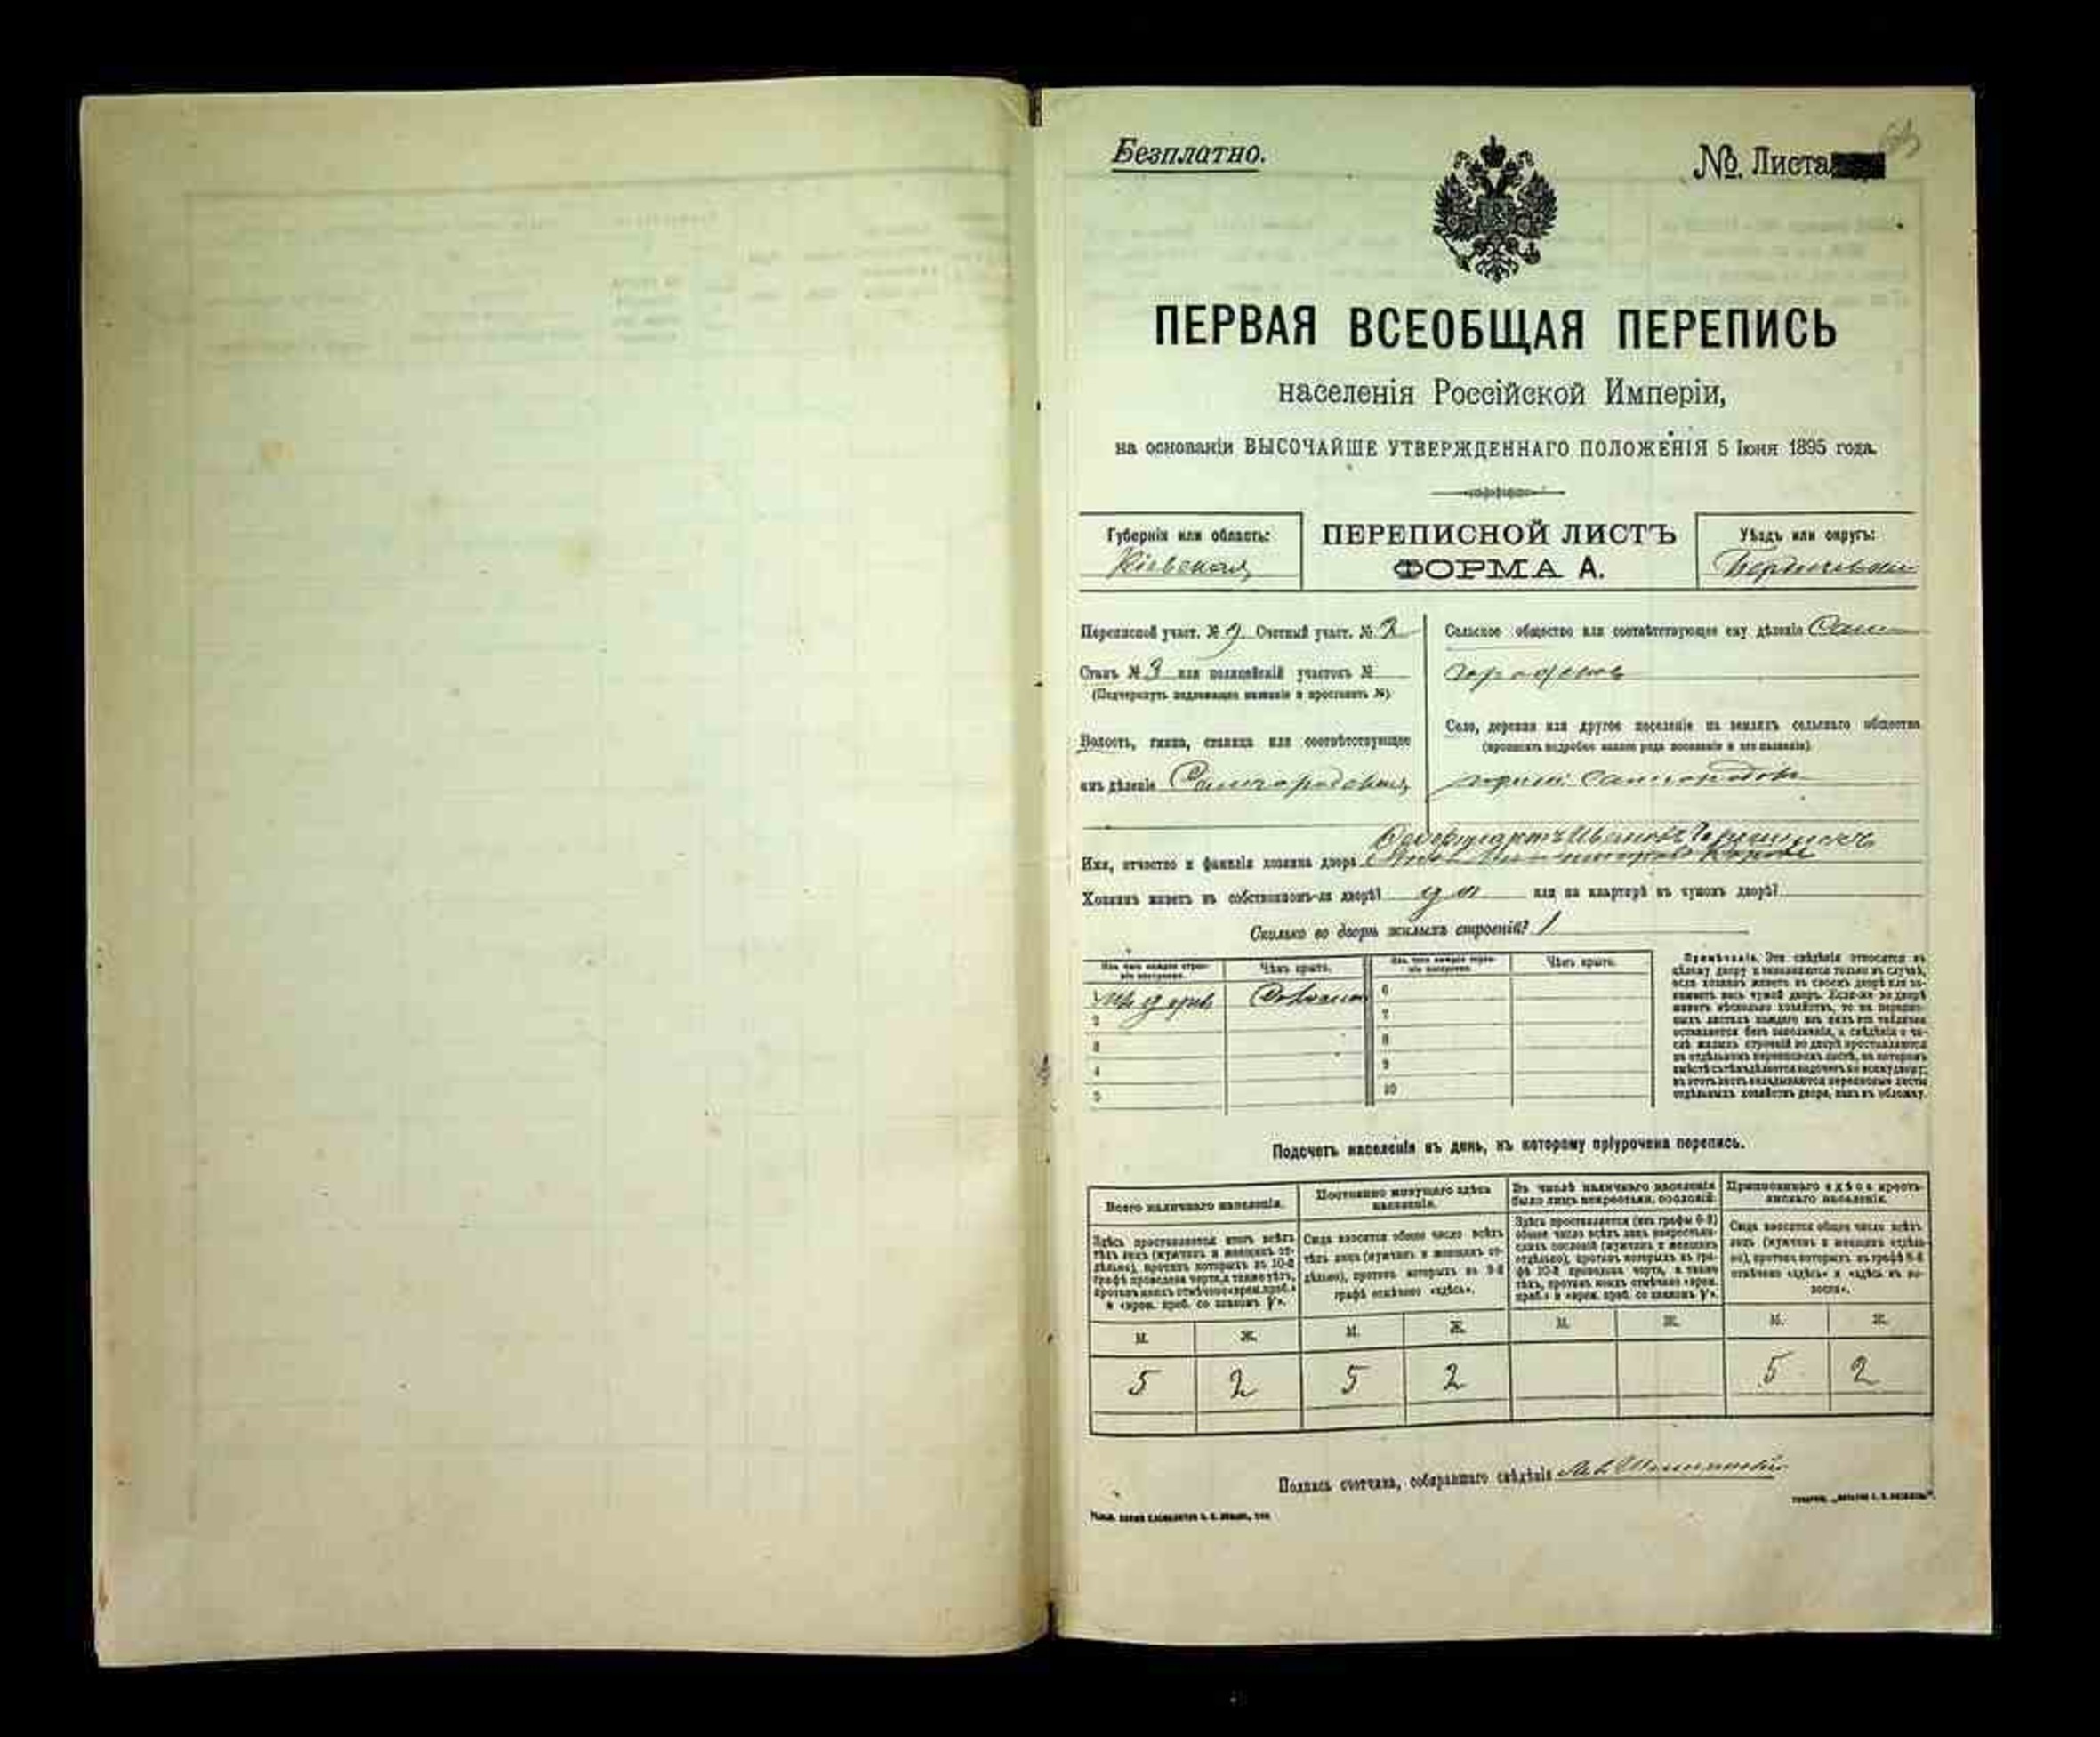 Безплатно.
№ Листа
ПЕРВАЯ ВСЕОБЩАЯ ПЕРЕПИСЬ
населенія Россійской Имперіи,
на основаніи ВЫСОЧАЙШЕ УТВЕРЖДЕННАГО ПОЛОЖЕНІЯ 5 Іюня 1895 года.
Губернія или область:
Кіевская
ПЕРЕПИСНОЙ ЛИСТЪ
ФОРМА А.
Уѣздъ или округъ:
Бердичевскій
Переписной участ. № 9 Счетный участ. № 2
Станъ № 3 или полицейскій участокъ №
(Подчеркнуть надлежащее названіе и проставить №)
Волость, гмина, станица или соотвѣтствующее
имъ дѣленіе Самгородская
Сельское общество или соотвѣтствующее ему дѣленіе Сам
городское
Село, деревня или другое поселеніе на земляхъ сельскаго общества
(прописать подробно какого рода поселеніе и его названіе).
Самгородокъ
Имя, отчество и фамилія хозяина двора
Хозяинъ живетъ въ собственномъ-ли дворѣ? да или на квартирѣ въ чужомъ дворѣ?
Сколько во дворѣ жилыхъ строеній? 1
Изъ чего каждое строе-
ніе построено.
Чѣмъ крыто.
Изъ чего каждое строе-
ніе построено.
Чѣмъ крыто.
1 Изъ дерев Соломой
2
3
4
5
6
7
8
9
10
Примѣчаніе. Эти свѣдѣнія относятся къ
цѣлому двору и заполняются только въ случаѣ,
если хозяинъ живетъ въ своемъ дворѣ или за-
нимаетъ весь чужой дворъ. Если-же во дворѣ
живетъ нѣсколько хозяйствъ, то на перепис-
ныхъ листахъ каждаго изъ нихъ эта табличка
оставляется безъ заполненія, а свѣдѣнія о чи-
слѣ жилыхъ строеній во дворѣ проставляются
на отдѣльномъ переписномъ листѣ, на которомъ
вмѣстѣ съ тѣмъ дѣлается подсчетъ по всему двору;
въ этотъ листъ вкладываются переписные листы
отдѣльныхъ хозяйствъ двора, какъ въ обложку.
Подсчетъ населенія въ день, къ которому пріурочена перепись.
Всего наличнаго населенія.
Здѣсь проставляется итогъ всѣхъ
тѣхъ лицъ (мужчинъ и женщинъ от-
дѣльно), противъ которыхъ въ 10-й
графѣ проведена черта, а также тѣхъ,
противъ коихъ отмѣчено «врем. преб.»
и «врем. преб. со знакомъ
Постоянно живущаго здѣсь
населенія.
Сюда вносится общее число всѣхъ
тѣхъ лицъ (мужчинъ и женщинъ от-
дѣльно), противъ которыхъ въ 9-й
графѣ отмѣчено «здѣсь».
Въ числѣ наличнаго населенія
было лицъ некрестьян. сословій.
Здѣсь проставляется (изъ графы 6-й)
общее число всѣхъ лицъ некрестьян-
скихъ сословій (мужчинъ и женщинъ
отдѣльно), противъ которыхъ въ гра-
фѣ 10-й проведена черта, а также
тѣхъ, противъ коихъ отмѣчено «врем.
преб.» и «врем. преб. со знакомъ
Приписаннаго здѣсь кресть-
янскаго населенія.
Сюда вносится общее число всѣхъ
лицъ (мужчинъ и женщинъ отдѣль-
но), противъ которыхъ въ графѣ 8-й
отмѣчено «здѣсь» и «здѣсь въ во-
лости».
М. Ж. М. Ж. М. Ж. М. Ж.
5 2 5 2 5 2
Подпись счетчика, собиравшаго свѣдѣнія